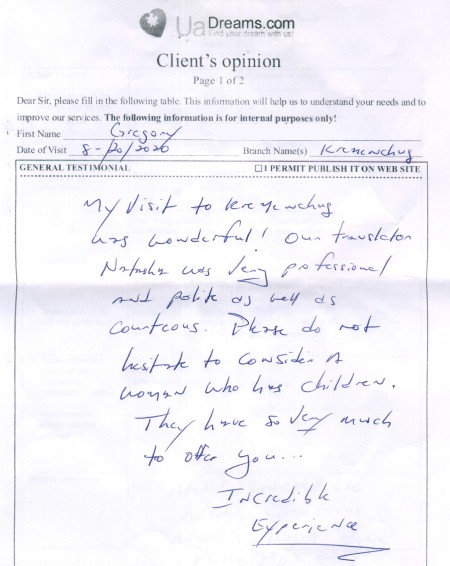 UaDreams.com
Find your dream with us!
Client's opinion
Page 1 of 2
Dear Sir, please fill in the following table. This information will help us to understand your needs and to
improve our services. The following information is for internal purposes only!
First Name Gregory
Date of Visit 8-20/2020 Branch Name(s) Kremenchug
GENERAL TESTIMONIAL ☐I PERMIT PUBLISH IT ON WEB SITE
My Visit to Kremenchug
was wonderful! Our translator
Natasha was very professional
and polite as well as
courteous. Please do not
hesitate to consider a
woman who has children.
They have so very much
to offer you...
Incredible
Experience